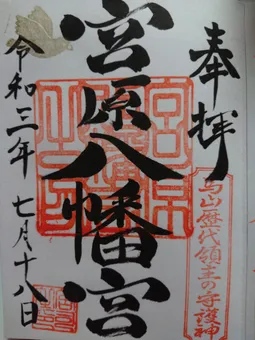 奉拝
烏山歴代領主の守護神
宮原八幡宮
令和三年七月十八日